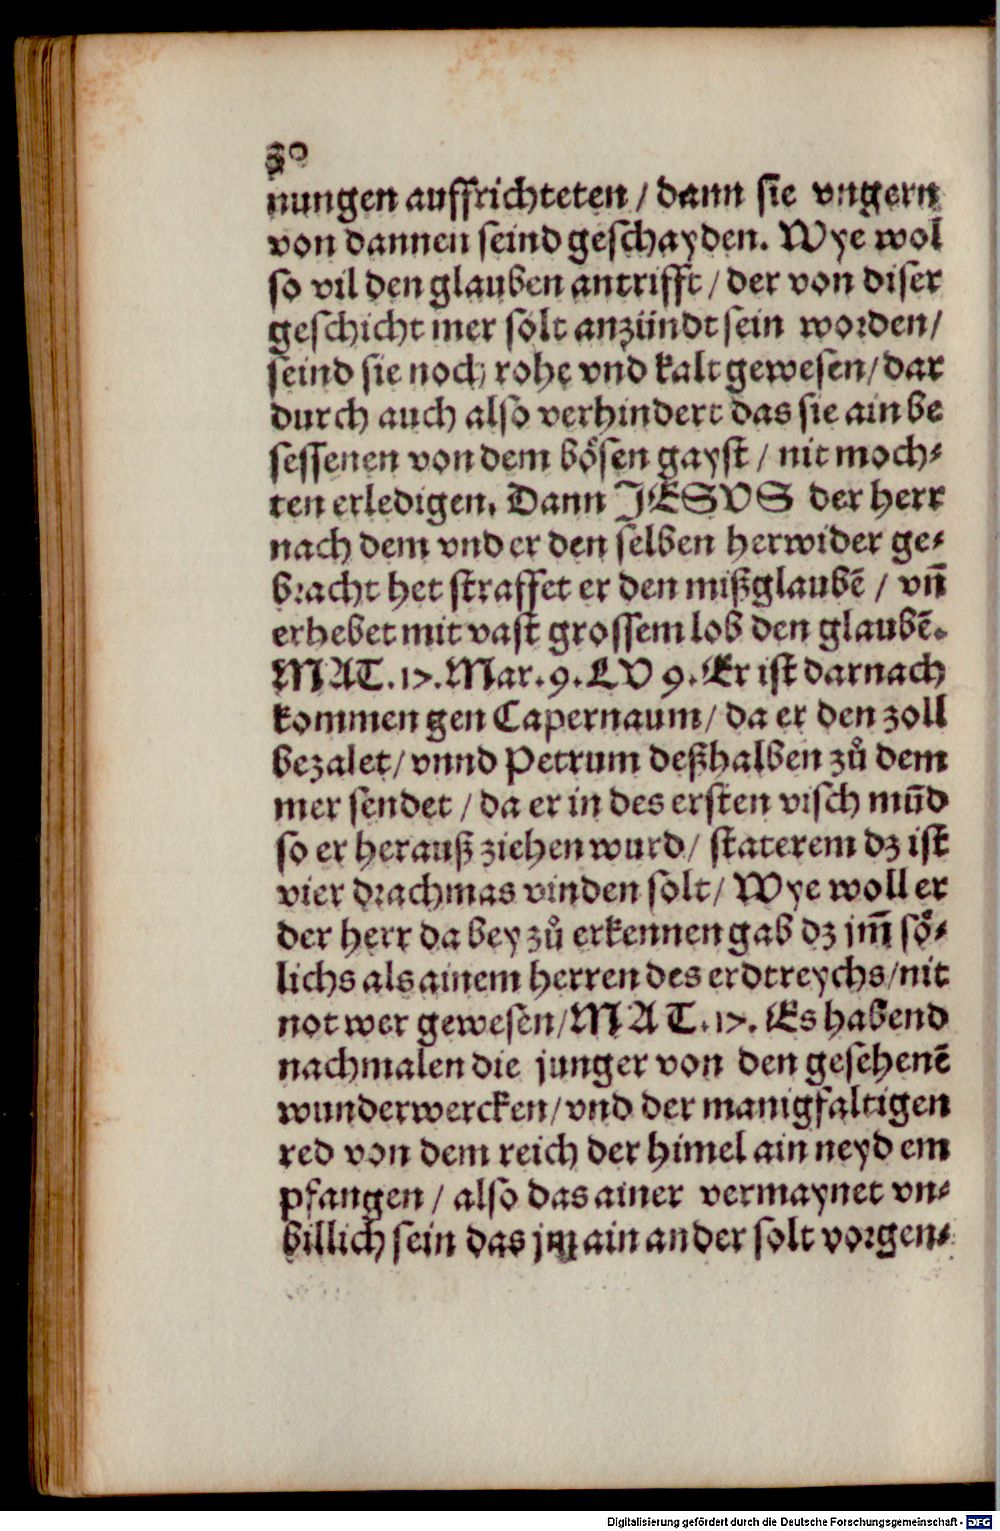 30
nungen auffrichteten / dann sie vngern
von dannen seind geschayden. Wye wol
so vil den glauben antrifft / der von diser
geschicht mer solt anzündt sein worden/
seind sie noch rohe vnd kalt gewesen/dar
durch auch also verhindert das sie ain be
sessenen von dem bösen gayst / nit moch⸗
ten erledigen. Dann JESVS der herr
nach dem vnd er den selben herwider ge⸗
bracht het straffet er den mißglaubē / vn̄
erhebet mit vast grossem lob den glaubē.
MAT.17.Mar.9.LV 9.Er ist darnach
kommen gen Capernaum/ da er den zoll
bezalet/ vnnd Petrum deßhalben zuͦ dem
mer sendet / da er in des ersten visch mūd
so er herauß ziehen wurd/ staterem dz ist
vier drachmas vinden solt/ Wye woll er
der herr da bey zuͦ erkennen gab dz jm̄ sö⸗
lichs als ainem herren des erdtreychs/nit
not wer gewesen/MAT.17. Es habend
nachmalen die junger von den gesehenē
wunderwercken/vnd der manigfaltigen
red von dem reich der himel ain neyd em
pfangen / also das ainer vermaynet vn⸗
billich sein das jm ain ander solt vorgen⸗
Digitalisierung gefördert durch die Deutsche Forschungsgemeinschaft - DFG